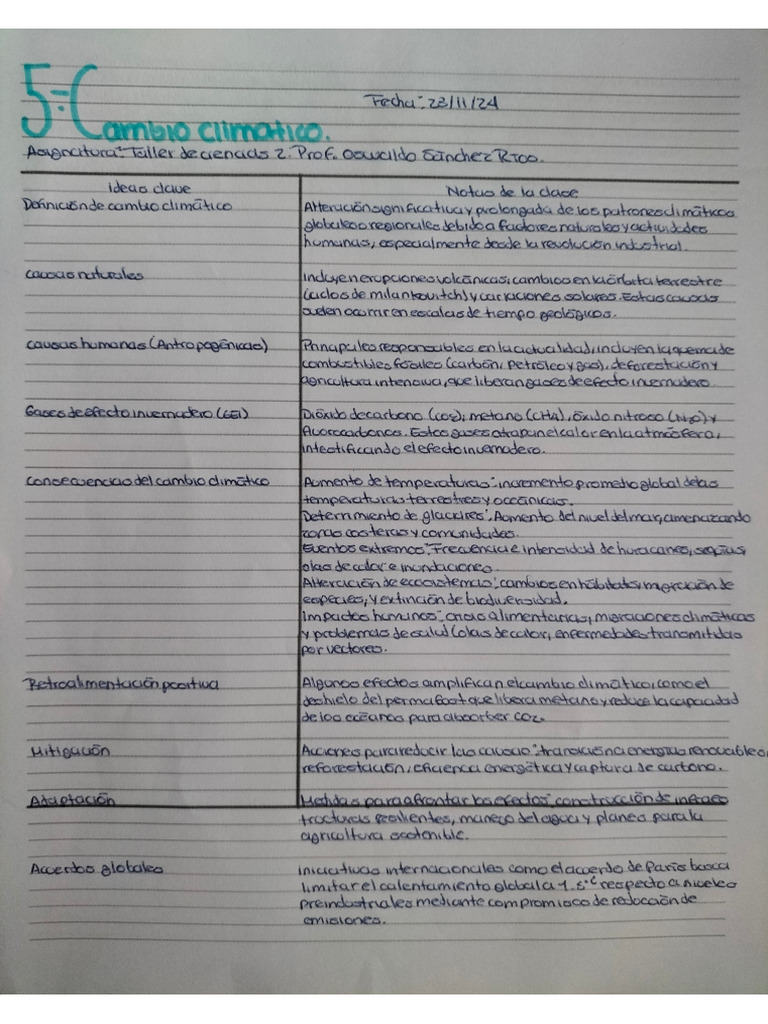 5.-Cambio climático.
Fecha: 23/11/24
Asignatura: Taller de ciencias 2. Prof. Oswaldo Sánchez Rico.
Ideas clave
Notas de la clase
Definición de cambio climático
Alteración significativa y prolongada de los patrones climáticos
globales o regionales debido a factores naturales y actividades
humanas, especialmente desde la revolución industrial.
Causas naturales
Incluyen erupciones volcánicas, cambios en la órbita terrestre
(ciclos de milankovitch) y variaciones solares. Estas causas
suelen ocurrir en escalas de tiempo geológicos.
Causas humanas (Antropogénicas)
Principales responsables en la actualidad, incluyen la quema de
combustibles fósiles (carbón, petróleo y gas), deforestación y
agricultura intensiva, que liberan gases de efecto invernadero.
Gases de efecto invernadero (GEI)
Dióxido de carbono (CO2), metano (CH4), óxido nitroso (N2O) y
fluorocarbonos. Estos gases atrapan el calor en la atmósfera,
intesificando el efecto invernadero.
Consecuencias del cambio climático
Aumento de temperaturas: incremento promedio global de las
temperaturas terrestres y oceánicas.
Deterrimiento de glaciares: Aumento del nivel del mar, amenazando
zonas costeras y comunidades.
Eventos extremos: Frecuencia e intensidad de huracanes, sequías,
olas de calor e inundaciones.
Alteración de ecosistemas: cambios en hábitats, migración de
especies, y extinción de biodiversidad.
Impactos humanos: crisis alimentarias, migraciones climáticas
y problemas de salud (olas de calor, enfermedades transmitidas
por vectores.
Retroalimentación positiva
Algunos efectos amplifican el cambio climático, como el
deshielo del permafost que libera metano y reduce la capacidad
de los océanos para absorber CO2.
Mitigación
Acciones para reducir las causas: transición a energías renovables,
reforestación, eficiencia energética y captura de carbono.
Adaptación
Medidas para afrontar los efectos: construcción de infraes
tructuras resilientes, manejo del agua y planes para la
agricultura sostenible.
Acuerdos globales
Iniciativas internacionales como el acuerdo de París busca
limitar el calentamiento global a 1.5°C respecto a niveles
preindustriales mediante compromisos de reducción de
emisiones.